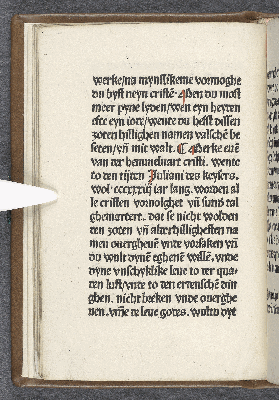 werke/na mynslikeme vormoghe
du byst neyn cristē. Men du most
meer pyne lyden/wen eyn heyden
efte eyn iode/wente du hefst dissen
zoten hillighen namen valsché be
seten/vñ mit walt. Merke euē
van der hemmelvart cristi. Wente
to den tijden Juliani des keysers.
wol .cccxxxiij iar lang. worden al
le cristen vervolghet vñ sund tal
ghemartert. dat se nicht wolden
den zoten vñ alderhillighesten na
men overgheuē vnde vorsaken vñ
du wult dynē eghenē willē. vnde
dyne vnschyklike leue to der qua
den lust/vnde to den ertenschē din
ghen. nicht breken vnde overghe
uen. vmme de leue godes. wultu dyt